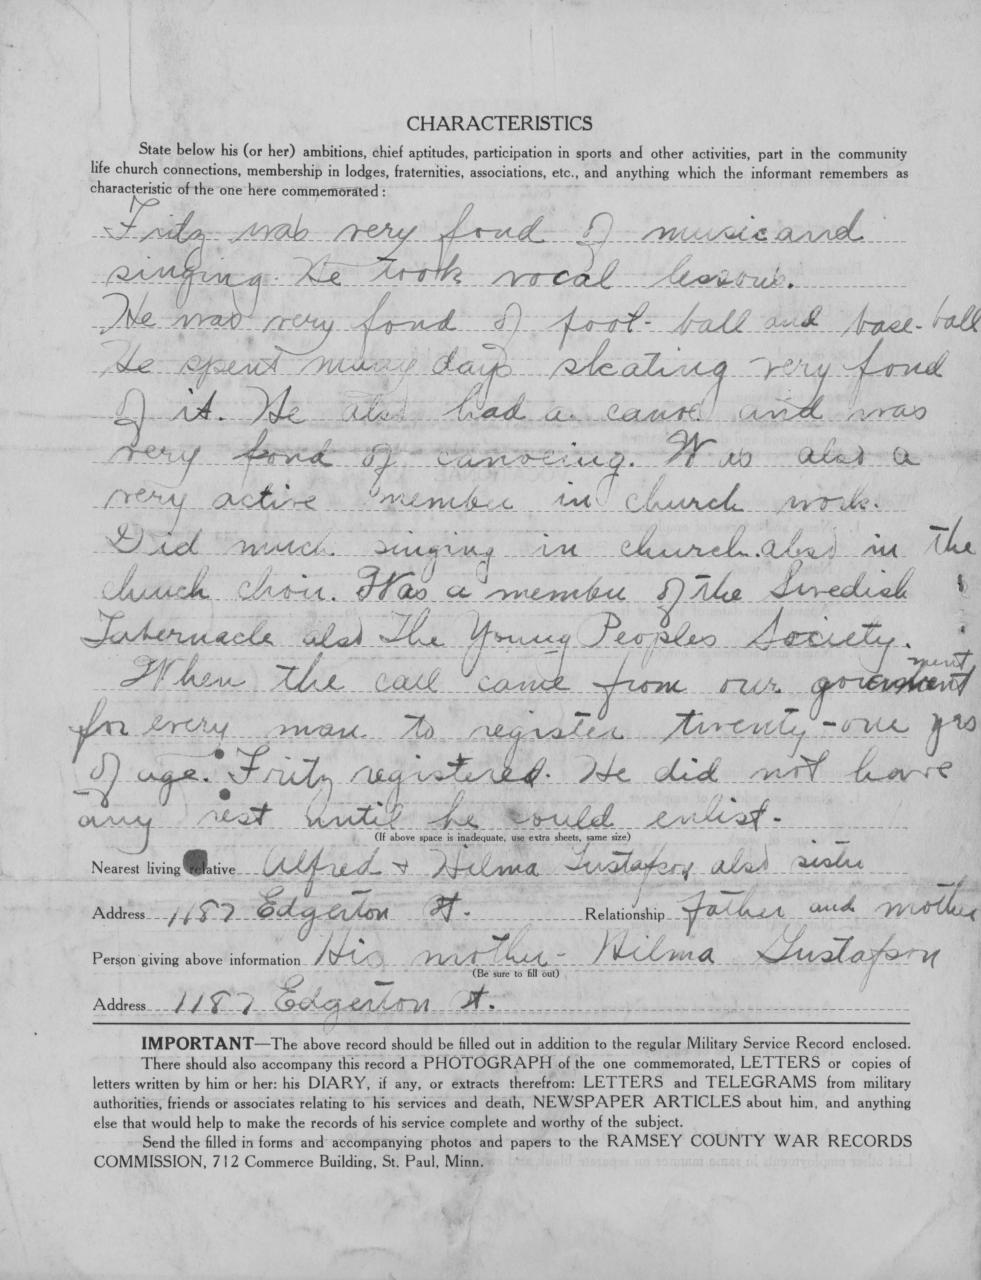 CHARACTERISTICS
State below his (or her) ambitions, chief aptitudes, participation in sports and other activities, part in the community
life church connections, membership in lodges, fraternities, associations, etc., and anything which the informant remembers as
characteristic of the one here commemorated:
Fritz was very fond of music and
singing. He took vocal lessons.
He was very fond of foot-ball and base-ball
He spent many days skating very fond
of it. He also had a canoe and was
very fond of canoeing. Was also a
very active member in church work.
Did much singing in church. also in the
church choir. Was a member of the Swedish
Tabernacle also The Young Peoples Society.
ment
When the call came from our
for every man to register twenty-one yrs
of age. Fritz registered. He did not have
any rest until he could enlist.
(If above space is inadequate, use extra sheets, same size)
Nearest living relative Alfred + Hilma Gustafson also sister
Address 1187 Edgerton St. Relationship Father and mother
Person giving above information His mother - Hilma Gustafson
(Be sure to fill out)
Address 1187 Edgerton St.
IMPORTANT—The above record should be filled out in addition to the regular Military Service Record enclosed.
There should also accompany this record a PHOTOGRAPH of the one commemorated, LETTERS or copies of
letters written by him or her: his DIARY, if any, or extracts therefrom: LETTERS and TELEGRAMS from military
authorities, friends or associates relating to his services and death, NEWSPAPER ARTICLES about him, and anything
else that would help to make the records of his service complete and worthy of the subject.
Send the filled in forms and accompanying photos and papers to the RAMSEY COUNTY WAR RECORDS
COMMISSION, 712 Commerce Building, St. Paul, Minn.